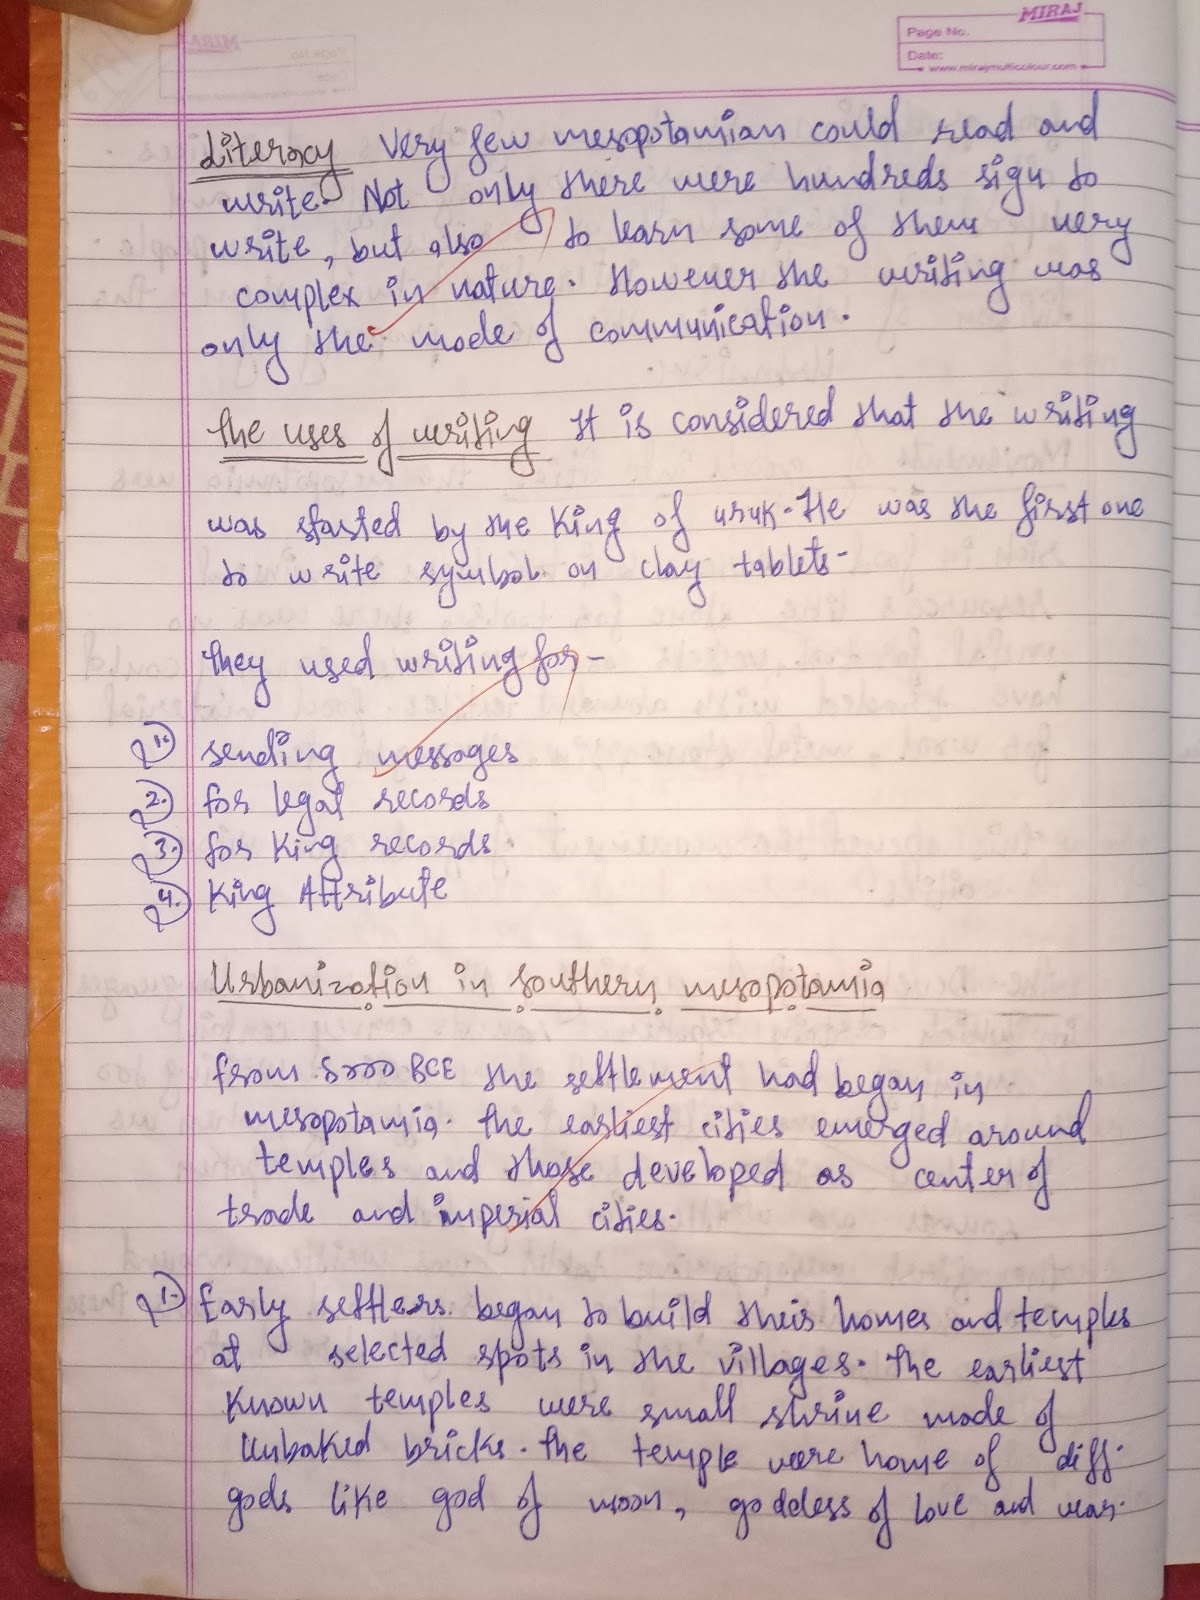 MIRAJ
Page No.
Date:
www.mirajmulticolour.com
Literacy Very few mesopotamian could read and
write. Not only there were hundreds sign to
write, but also to learn some of them very
complex in nature. However the writing was
only the mode of communication.
The uses of writing It is considered that the writing
was started by the King of uruk. He was the first one
to write symbol on clay tablets-
They used writing for-
1. sending messages
2. for legal records
3. for King records
4. King Attribute
Urbanization in southern mesopotamia
from 5000 BCE the settlement had began in
mesopotamia. The earliest cities emerged around
temples and those developed as center of
trade and imperial cities.
1. Early settlers began to build their homes and temples
at selected spots in the villages. The earliest
known temples were small shrine made of
unbaked bricks. The temple were home of diff.
gods like god of moon, goddess of love and war.